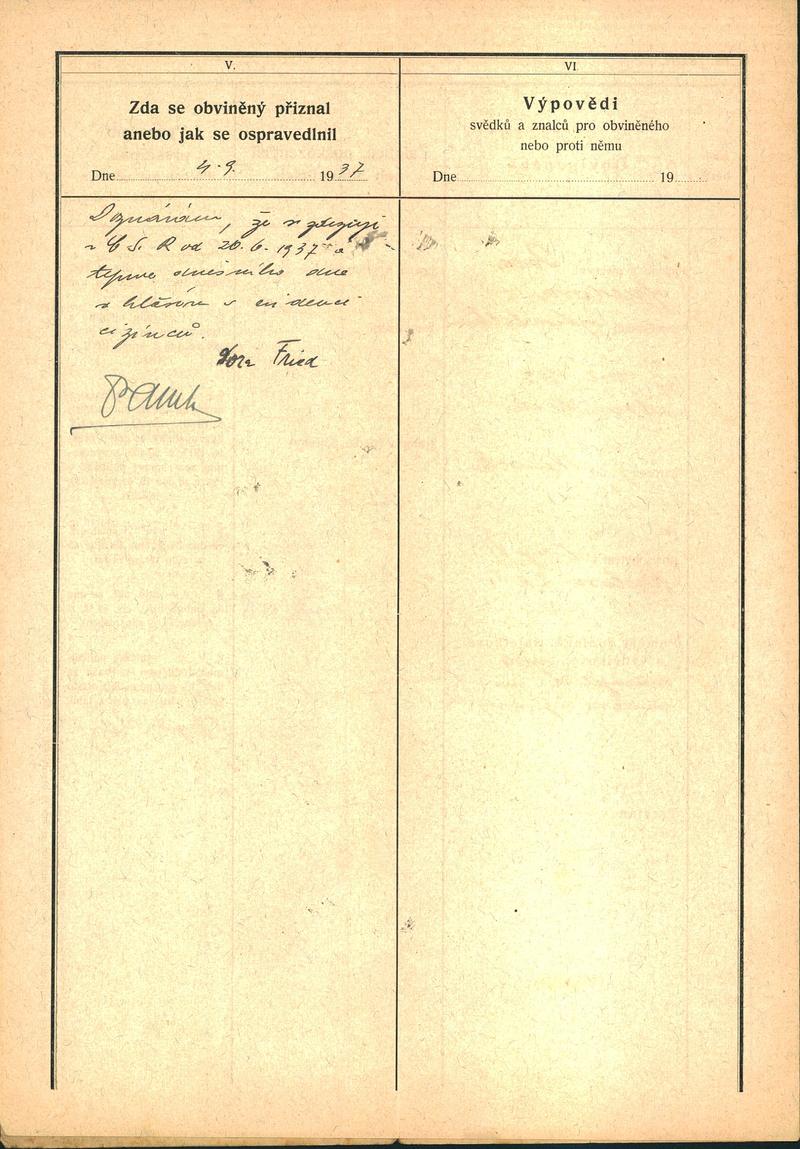 V.
Zda se obviněný přiznal
anebo jak se ospravedlnil
Dne 4. 9. 1937
Doznávám, že se zdržuji
v ČS. R od 20. 6. 1937 a
teprve dnešního dne
se hlásím v evidenci
cizinců.
Dora Fried
VI.
Výpovědi
svědků a znalců pro obviněného
nebo proti němu
Dne 19